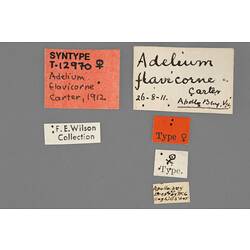 SYNTYPE
T-12970 ♀
Adelium
flavicorne
Carter, 1912
Adelium
flavicorne
Carter
26-8-11. Apollo Bay, Vic
F.E. Wilson
Collection
Type ♀
♀
Type.
Apollo Bay